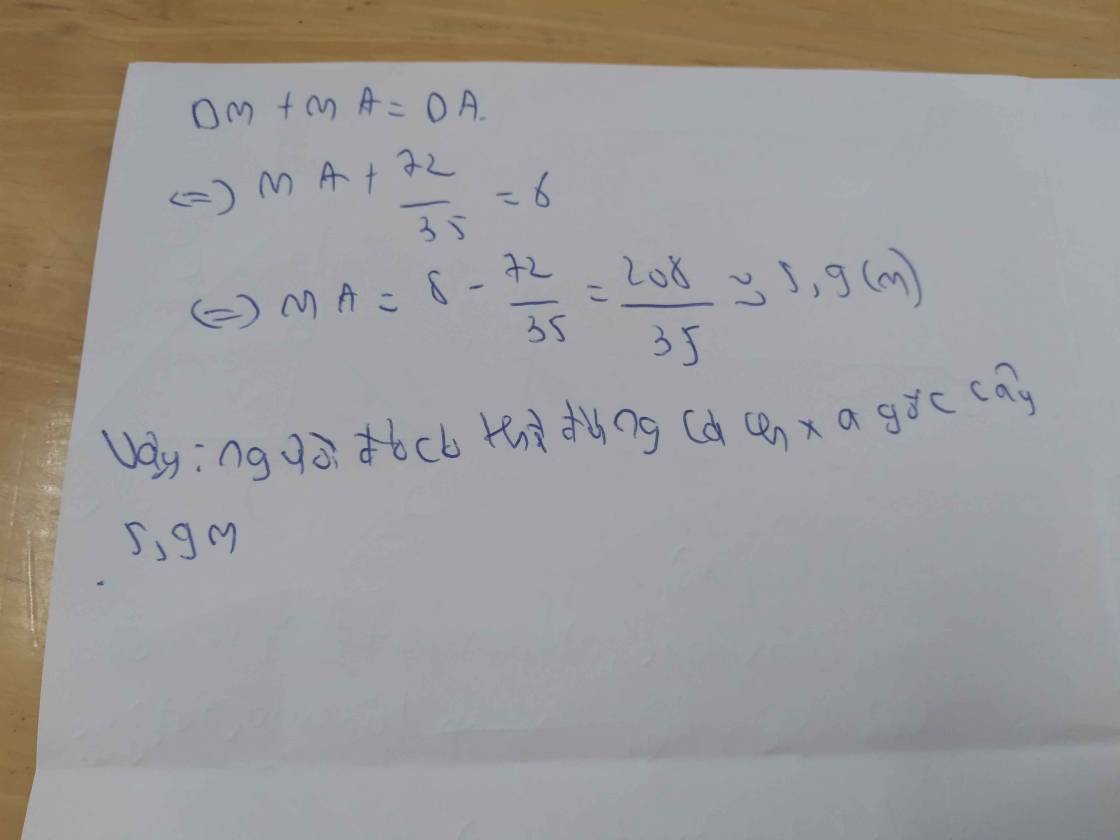 DM + MA = DA.
<=> MA + 72/35 = 8
<=> MA = 8 - 72/35 = 208/35 ≈ 5,9 (m)
Vậy: người đó thì đứng cách xa gốc cây
5,9 m